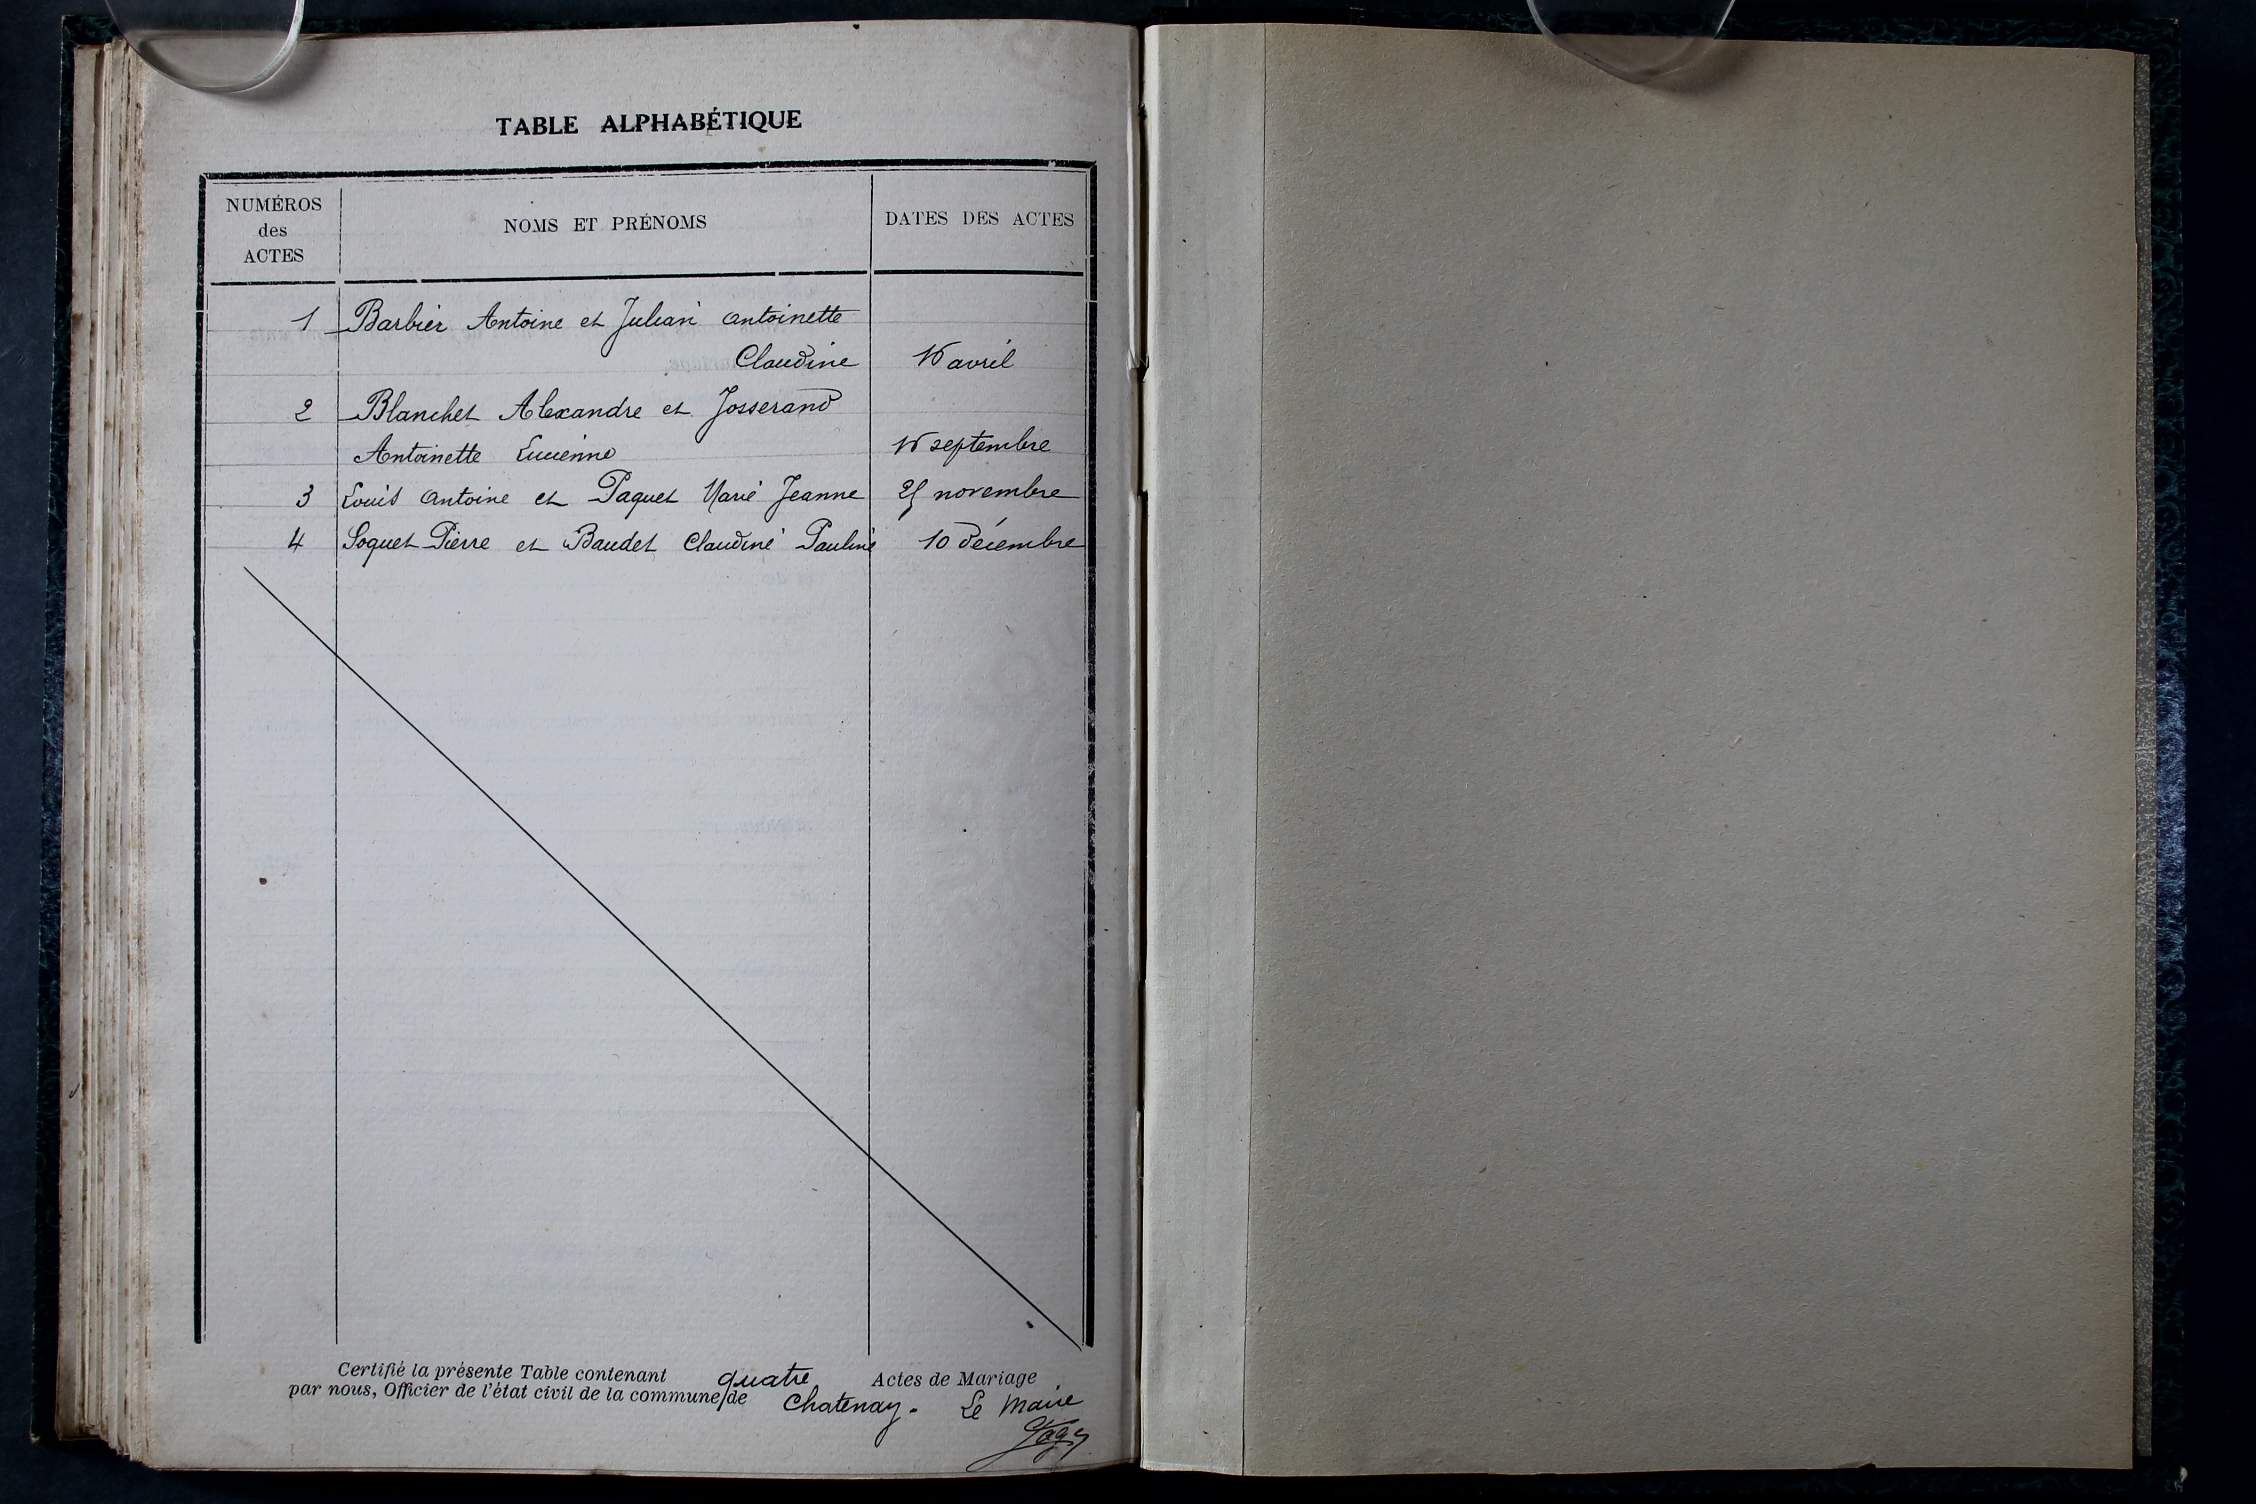 TABLE ALPHABÉTIQUE
NUMÉROS
des
ACTES
NOMS ET PRÉNOMS
DATES DES ACTES
1 Barbier Antoine et Julian antoinette
Claudine 16 avril
2 Blanchet Alexandre et Josserand
Antoinette Lucienne 16 septembre
3 Louis antoine et Paquet Marie Jeanne 25 novembre
4 Soquet Pierre et Baudet Claudine Pauline 10 décembre
Certifié la présente Table contenant quatre Actes de Mariage
par nous, Officier de l'état civil de la commune de Chatenay. Le Maire